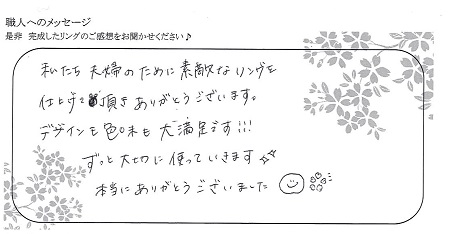 職人へのメッセージ
是非 完成したリングのご感想をお聞かせください♪
私たち夫婦のために素敵なリングを
仕上げて頂きありがとうございます。
デザインも色味も大満足です!!!
ずっと大切に使っていきます
本当にありがとうございました